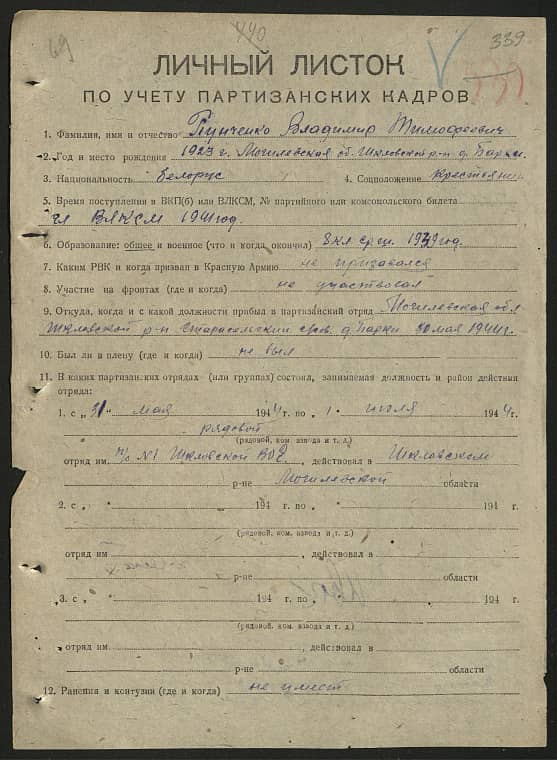 69
440
339
ЛИЧНЫЙ ЛИСТОК
ПО УЧЕТУ ПАРТИЗАНСКИХ КАДРОВ
1. Фамилия, имя и отчество Владимир Тимофеевич
2. Год и место рождения 1923 г. Могилевская об. Шкловской р-н д. Барки
3. Национальность белорус 4. Соцположение крестьянин
5. Время поступления в ВКП(б) или ВЛКСМ, № партийного или комсомольского билета
чл ВЛКСМ 1941 год.
6. Образование: общее и военное (что и когда окончил) 8 кл ср. ш. 1939 год.
7. Каким РВК и когда призван в Красную Армию не призавался
8. Участие на фронтах (где и когда) не участвовал
9. Откуда, когда и с какой должности прибыл в партизанский отряд Могилевская обл
Шкловской р-н Старасельский с/сов. д. Барки 30 мая 1944 г.
10. Был ли в плену (где и когда) не был
11. В каких партизанских отрядах (или группах) состоял, занимаемая должность и район действия
отряда:
1. с „31" мая 1944 г. по „1" июля 1944 г.
рядовой
(рядовой, ком. взвода и т. д.)
отряд им. п/о №1 Шкловской ВОГ, действовал в Шкловском
р-не Могилевской области
2. с „ " 194 г. по „ " 194 г.
(рядовой, ком. взвода и т. д.)
отряд им , действовал в
р-не области
3. с „ " 194 г. по „ " 194 г.
(рядовой, ком. взвода и т. д.)
отряд им. , действовал в
р-не области
12. Ранения и контузии (где и когда) не имеет